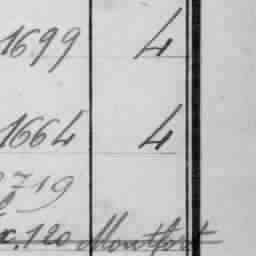 1699 4
1664 4
2719
x. 120 Montfort